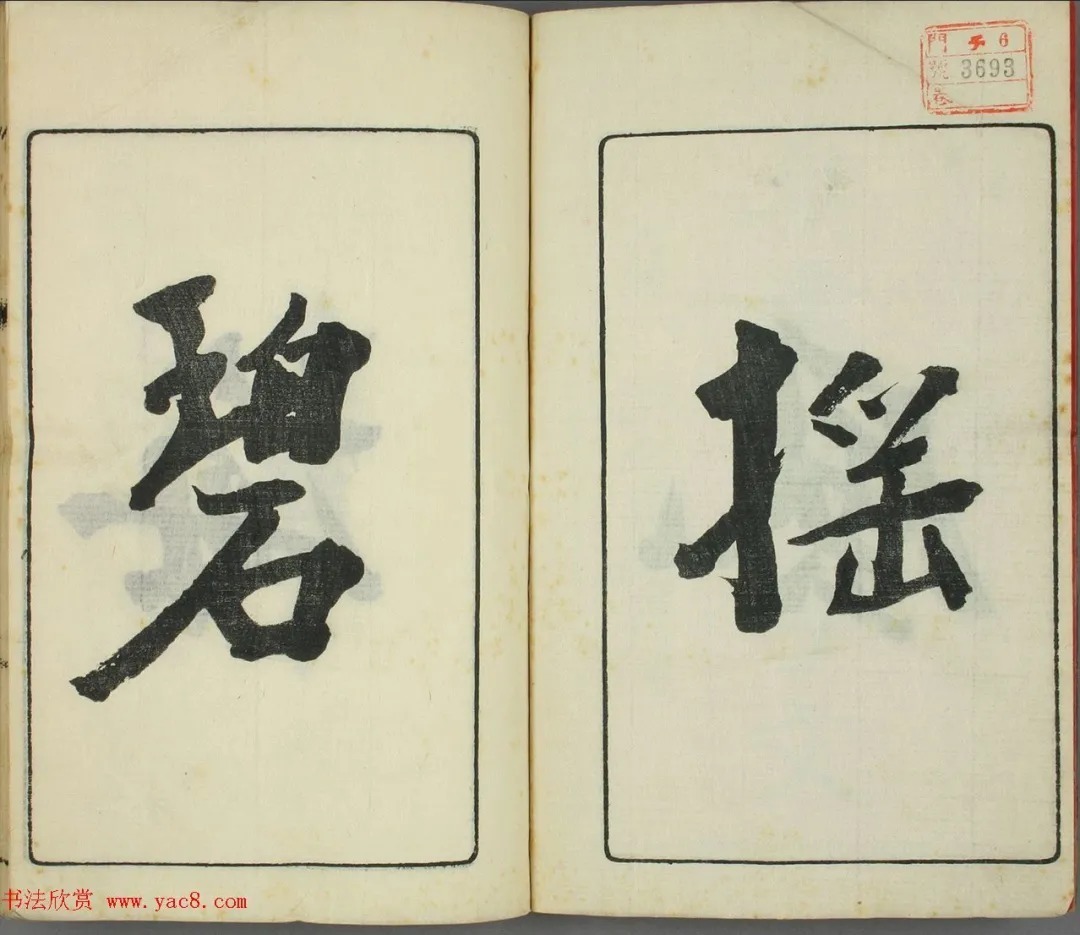 搖
碧
門 子 6
號 3693
卷
书法欣赏 www.yac8.com